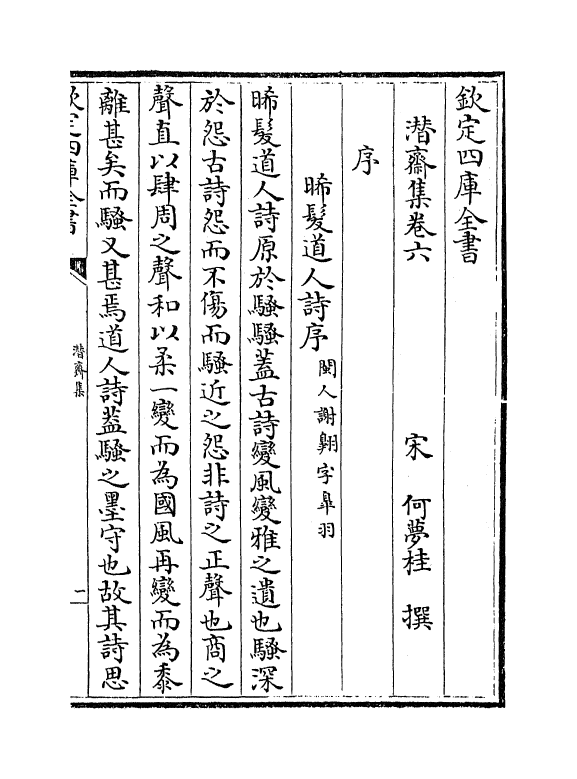 欽定四庫全書
潛齋集卷六
宋 何夢桂 撰
序
晞髮道人詩序
閩人謝翺字臯羽
晞髮道人詩原於騷騷蓋古詩變風變雅之遺也騷深
於怨古詩怨而不傷而騷近之怨非詩之正聲也商之
聲直以肆周之聲和以柔一變而為國風再變而為黍
離甚矣而騷又甚焉道人詩葢騷之墨守也故其詩思
欽定四庫全書
潛齋集
二